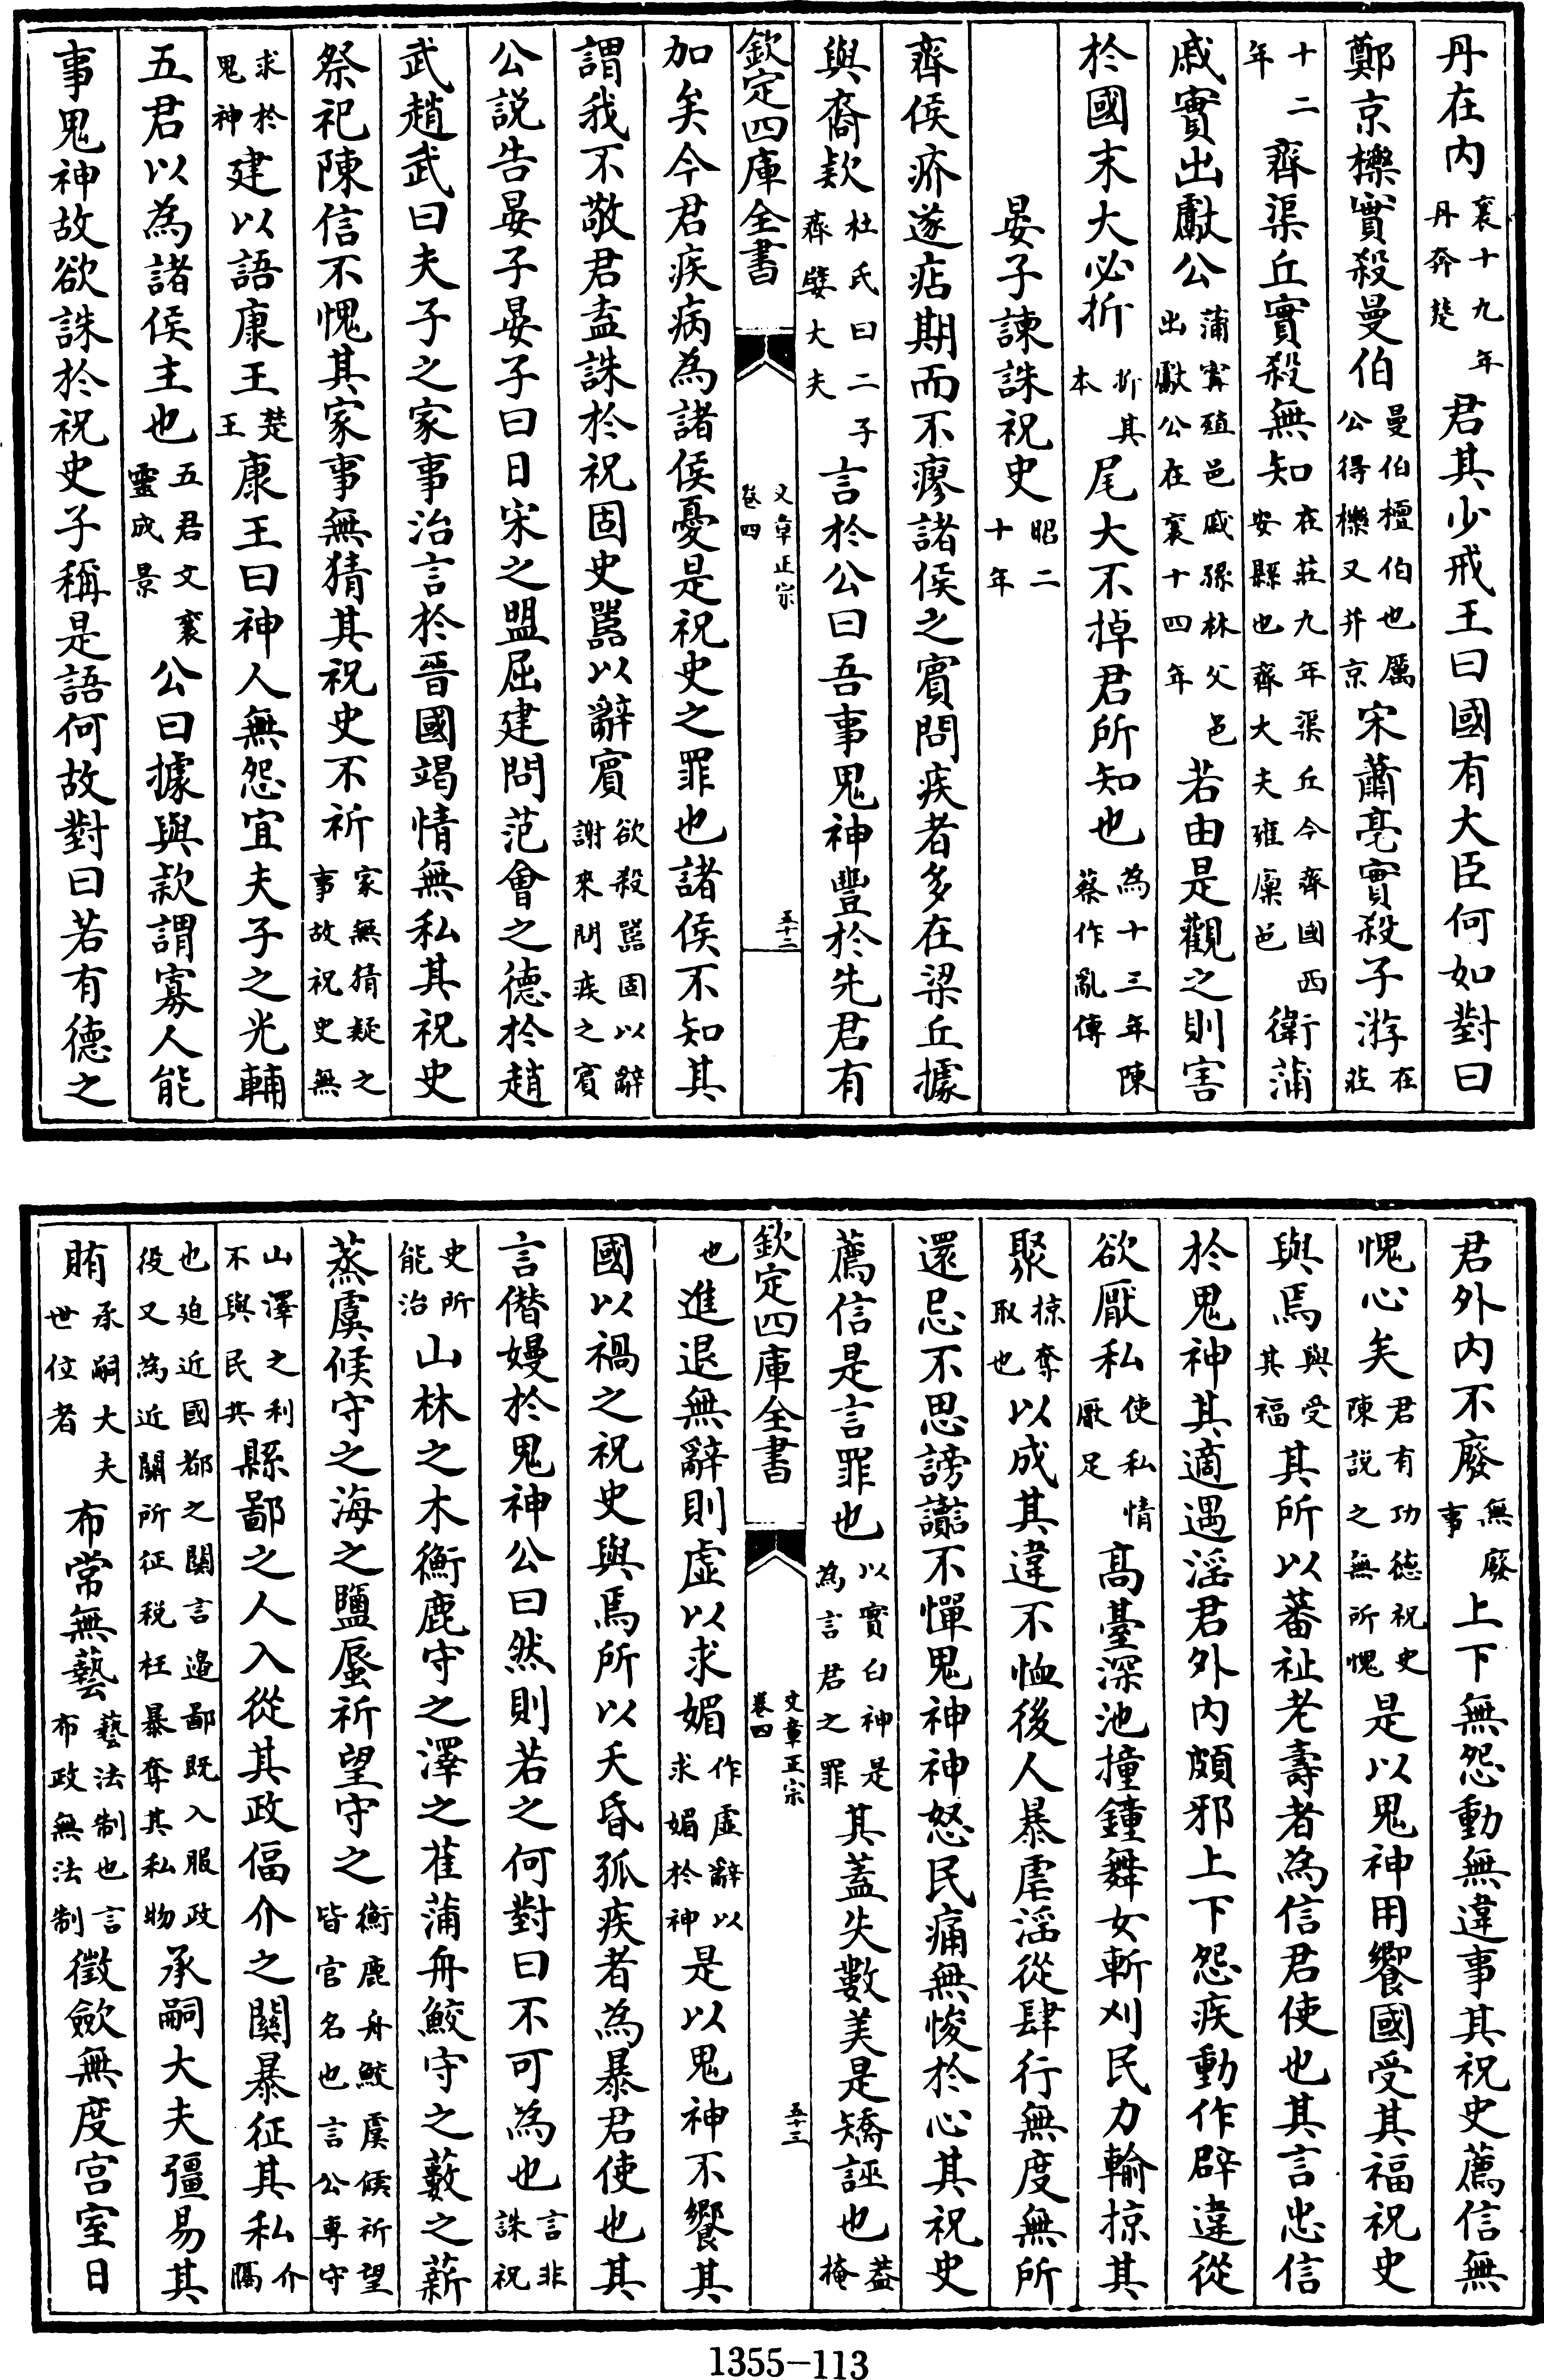 丹在内襄十九年丹奔楚君其少戒王曰國有大臣何如對曰
鄭京櫟實殺曼伯曼伯檀伯也厲公得櫟又并京宋蕭亳實殺子游在莊
十二年齊渠丘實殺無知在莊九年渠丘今齊國西安縣也齊大夫雍廩邑衛蒲
戚實出獻公蒲甯殖邑戚孫林父邑出獻公在襄十四年若由是觀之則害
於國末大必折折其本尾大不掉君所知也為十三年陳蔡作亂傳
晏子諫誅祝史昭二十年
齊侯疥遂痁期而不瘳諸侯之賓問疾者多在梁丘據
與裔款杜氏曰二子齊嬖大夫言於公曰吾事鬼神豐於先君有
欽定四庫全書 文章正宗 卷四 五十二
加矣今君疾病為諸侯憂是祝史之罪也諸侯不知其
謂我不敬君盍誅於祝固史嚚以辭賓欲殺嚚固以辭謝來問疾之賓
公説告晏子晏子曰日宋之盟屈建問范會之德於趙
武趙武曰夫子之家事治言於晉國竭情無私其祝史
祭祀陳信不愧其家事無猜其祝史不祈家無猜疑之事故祝史無
求於鬼神建以語康王楚王康王曰神人無怨宜夫子之光輔
五君以為諸侯主也五君文襄靈成景公曰據與款謂寡人能
事鬼神故欲誅於祝史子稱是語何故對曰若有德之
君外内不廢無廢事上下無怨動無違事其祝史薦信無
愧心矣君有功德祝史陳説之無所愧是以鬼神用饗國受其福祝史
與焉與受其福其所以蕃祉老壽者為信君使也其言忠信
於鬼神其適遇淫君外内頗邪上下怨疾動作辟違從
欲厭私使私情厭足高臺深池撞鐘舞女斬刈民力輸掠其
聚掠奪取也以成其違不恤後人暴虐淫從肆行無度無所
還忌不思謗讟不憚鬼神神怒民痛無悛於心其祝史
薦信是言罪也以實白神是為言君之罪其蓋失數美是矯誣也葢掩
欽定四庫全書 文章正宗 卷四 五十三
也進退無辭則虛以求媚作虛辭以求媚於神是以鬼神不饗其
國以禍之祝史與焉所以夭昏孤疾者為暴君使也其
言僭嫚於鬼神公曰然則若之何對曰不可為也言非誅祝
史所能治山林之木衡鹿守之澤之萑蒲舟鮫守之藪之薪
蒸虞候守之海之鹽蜃祈望守之衡鹿舟鮫虞候祈望皆官名也言公專守
山澤之利不與民共縣鄙之人入從其政偪介之關暴征其私介隔
也迫近國都之關言邉鄙既入服政役又為近關所征税枉暴奪其私物承嗣大夫彊易其
賄承嗣大夫世位者布常無藝藝法制也言布政無法制徵歛無度宫室日
1355-113